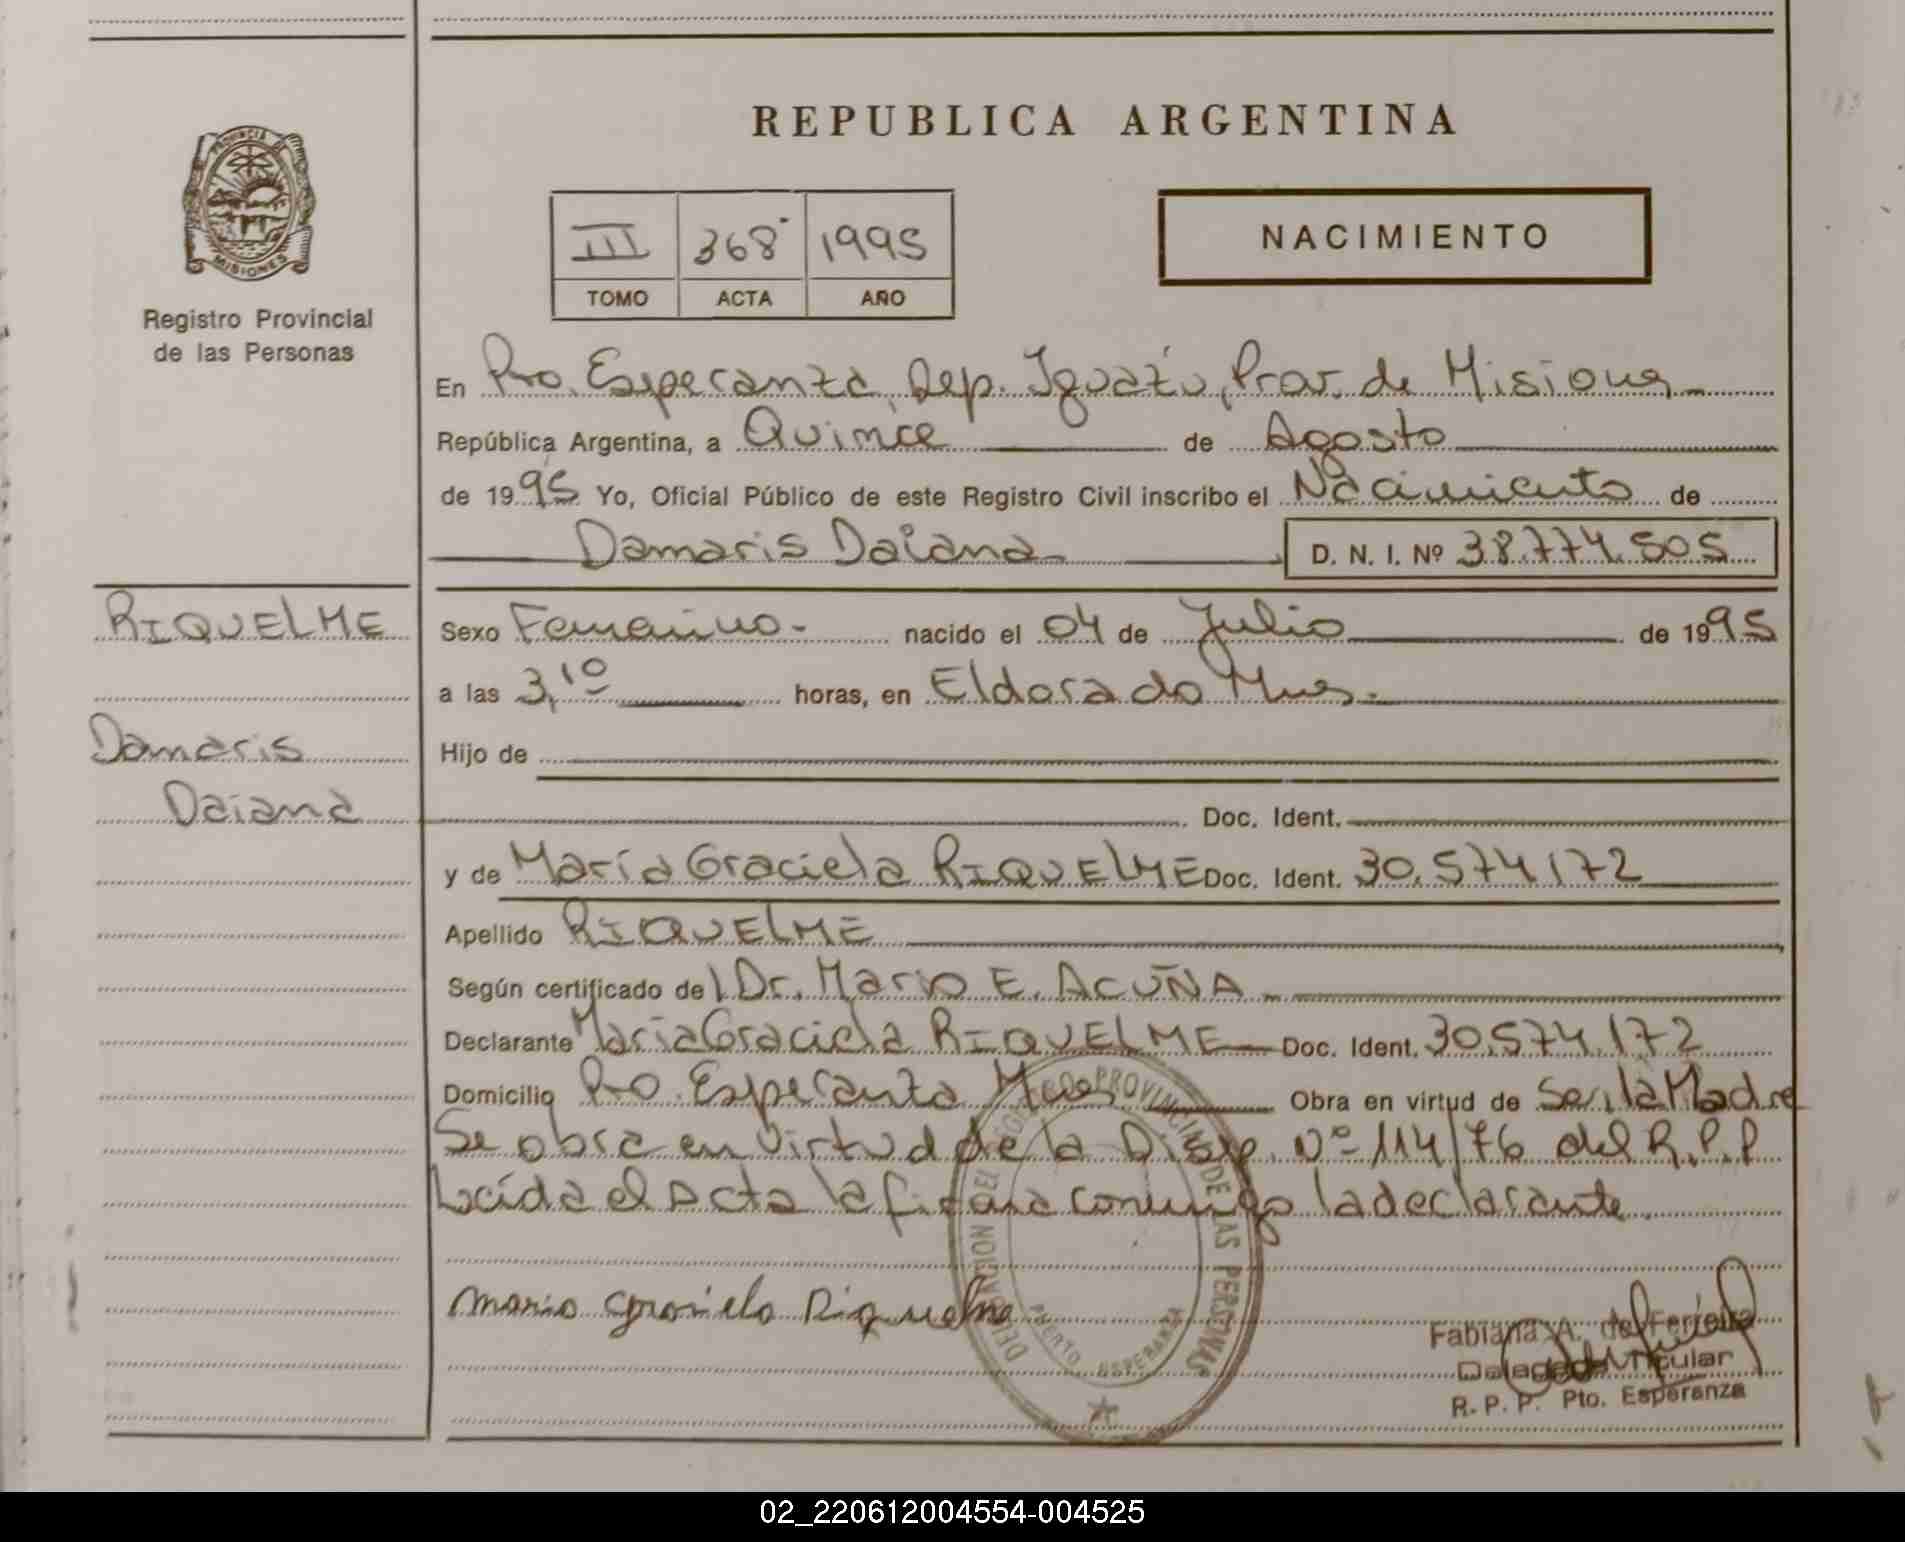 REPUBLICA ARGENTINA
PROVINCIA DE
MISIONES
Registro Provincial
de las Personas
III 368 1995
TOMO ACTA AÑO
NACIMIENTO
En Pto. Esperanza, Dep. Iguazú, Prov. de Misiones
República Argentina, a Quince de Agosto
de 1995 Yo, Oficial Público de este Registro Civil inscribo el Nacimiento de
Damaris Daiana D. N. I. Nº 38.774.505
RIQUELME
Damaris
Daiana
Sexo Femenino.- nacido el 04 de Julio de 1995
a las 3,10 horas, en Eldorado Mnes.
Hijo de
Doc. Ident.
y de María Graciela RIQUELME Doc. Ident. 30.574.172
Apellido RIQUELME
Según certificado de l Dr. Mario E. ACUÑA
Declarante María Graciela RIQUELME Doc. Ident. 30.574.172
Domicilio Pto. Esperanza Mnes Obra en virtud de Ser la Madre
Se obra en virtud de la Disp. Nº 114/76 del R.P.P
Leída el Acta la firma conmigo la declarante
Maria Graciela Riquelme
DELEGACION DEL REGISTRO PROVINCIAL DE LAS PERSONAS
PUERTO ESPERANZA
Fabiana A. de Ferreira
Delegada Titular
R. P. P. Pto. Esperanza
02_220612004554-004525